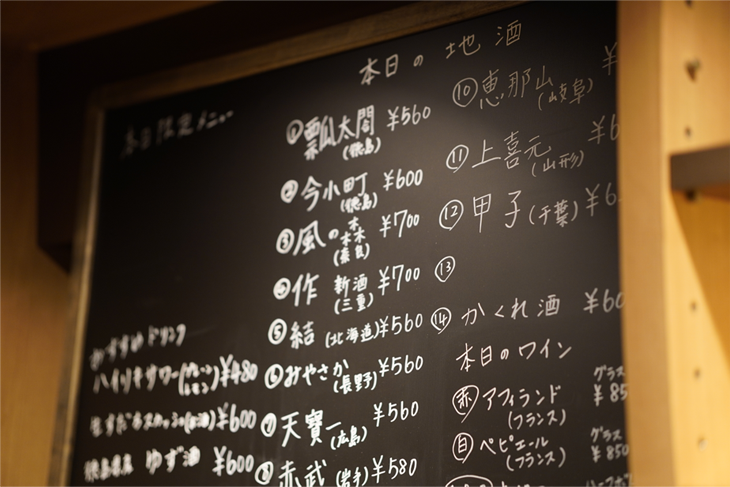 本日限定メニュー
おすすめドリンク
ハイリキサワー(プレーン レモン)¥480
¥600
ゆず酒 ¥600
本日の地酒
① 瓢太閤 ¥560
(徳島)
② 今小町 ¥600
(徳島)
③ 風の森 ¥700
(奈良)
④ 作 新酒 ¥700
(三重)
⑤ 結 (北海道) ¥560
⑥ みやさか ¥560
(長野)
⑦ 天寶一 ¥560
(広島)
⑧ 赤武 (岩手) ¥580
⑩ 恵那山 ¥
(岐阜)
⑪ 上喜元 ¥6
(山形)
⑫ 甲子 (千葉) ¥6
⑬
⑭ かくれ酒 ¥60
本日のワイン
赤 アフィランド グラス
(フランス) ¥85
白 ペピエール グラス
(フランス) ¥850